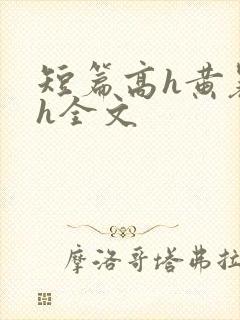 短篇高h黄暴
h全文
摩洛哥塔弗拉